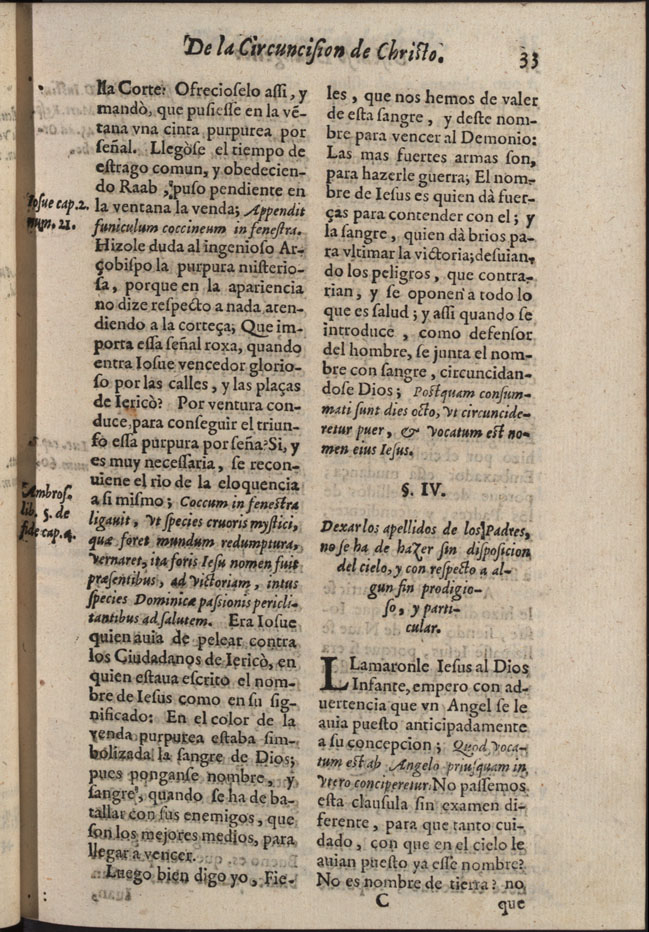 De la Circuncision de Christo.
33
lla Corte: Ofrecioselo assi, y
mandò, que pusiesse en la vẽ-
tana vna cinta purpurea por
señal. Llegòse el tiempo de
estrago comun, y obedecien-
do Raab, puso pendiente en
la ventana la venda; Appendit
funiculum coccineum in fenestra.
Hizole duda al ingenioso Ar-
çobispo la purpura misterio-
sa, porque en la apariencia
no dize respecto a nada aten-
diendo a la corteça; Que im-
porta essa señal roxa, quando
entra Iosue vencedor glorio-
so por las calles, y las plaças
de Iericò? Por ventura con-
duce para conseguir el triun-
fo essa purpura por seña? Si, y
es muy necessaria, se recon-
uiene el rio de la eloquencia
a si mismo; Coccum in fenestra
ligauit, vt species cruoris mystici,
quæ foret mundum redumptura,
vernaret, ita foris Iesu nomen fuit
præsentibus, ad victoriam, intus
species Dominicæ passionis pericli-
tantibus ad salutem. Era Iosue
quien auia de pelear contra
los Ciudadanos de Iericò, en
quien estaua escrito el nom-
bre de Iesus como en su sig-
nificado: En el color de la
venda purpurea estaba sim-
bolizada la sangre de Dios;
pues ponganse nombre, y
sangre, quando se ha de ba-
tallar con sus enemigos, que
son los mejores medios, para
llegar a vencer.
Luego bien digo yo, Fie-
Iosue cap. 2.
num. 21.
Ambros.
lib. 5. de
fide cap. 4.
les, que nos hemos de valer
de esta sangre, y deste nom-
bre para vencer al Demonio:
Las mas fuertes armas son,
para hazerle guerra; El nom-
bre de Iesus es quien dà fuer-
ças para contender con el; y
la sangre, quien dà brios pa-
ra vltimar la victoria; desuian-
do los peligros, que contra-
rian, y se oponen a todo lo
que es salud; y assi quando se
introduce, como defensor
del hombre, se junta el nom-
bre con sangre, circuncidan-
dose Dios; Postquam consum-
mati sunt dies octo, vt circuncide-
retur puer, & vocatum est no-
men eius Iesus.
§. IV.
Dexar los apellidos de los Padres,
no se ha de hazer sin disposicion
del cielo, y con respecto a al-
gun fin prodigio-
so, y parti-
cular.
LLamaronle Iesus al Dios
Infante, empero con ad-
uertencia que vn Angel se le
auia puesto anticipadamente
a su concepcion; Quod voca-
tum est ab Angelo priusquam in
vtero conciperetur. No passemos
esta clausula sin examen di-
ferente, para que tanto cui-
dado, con que en el cielo le
auian puesto ya esse nombre?
No es nombre de tierra? no
C
que